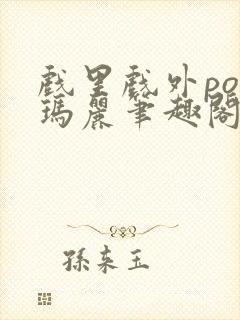 戲里戲外po
瑪麗筆趣閣
孫來玉